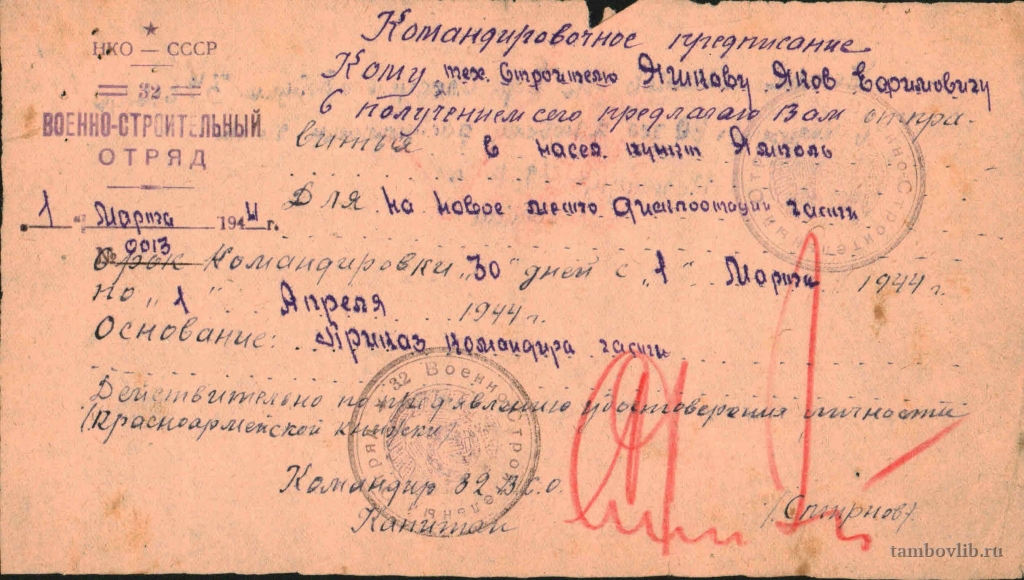 НКО — СССР
32
ВОЕННО-СТРОИТЕЛЬНЫЙ
ОТРЯД
1 " Марта 1944 г.
№ 0013
Командировочное предписание
Кому тех. Строителю Яшкову Яков Ефимовичу
С получением сего предлагаю Вам отпра-
виться в насел. пункт Ямполь
Для На новое место дислоотации части
Срок Командировки "30" дней с "1" Марта 1944 г.
по "1" Апреля 1944 г.
Основание: Приказ командира части
Действительно по предявлению удостоверения личности
/Красноармейской книжки/
Командир 32 В.С.О.
Капитан /Смирнов/
32 Военно Строительный Отряд
Военно Строительный Отряд
tambovlib.ru